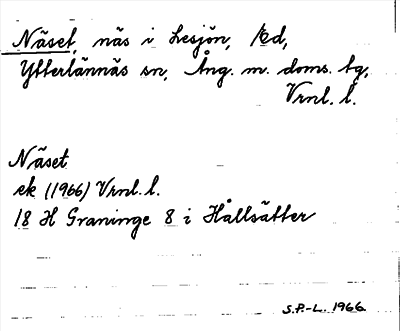 Näset, näs i Lesjön, /Ed,
Ytterlännäs sn, Ång. m. doms. tg,
Vrnl. l.
Näset
ek (1966) Vrnl. l.
18 H Graninge 8 i Hållsätter
S.P.-L. 1966